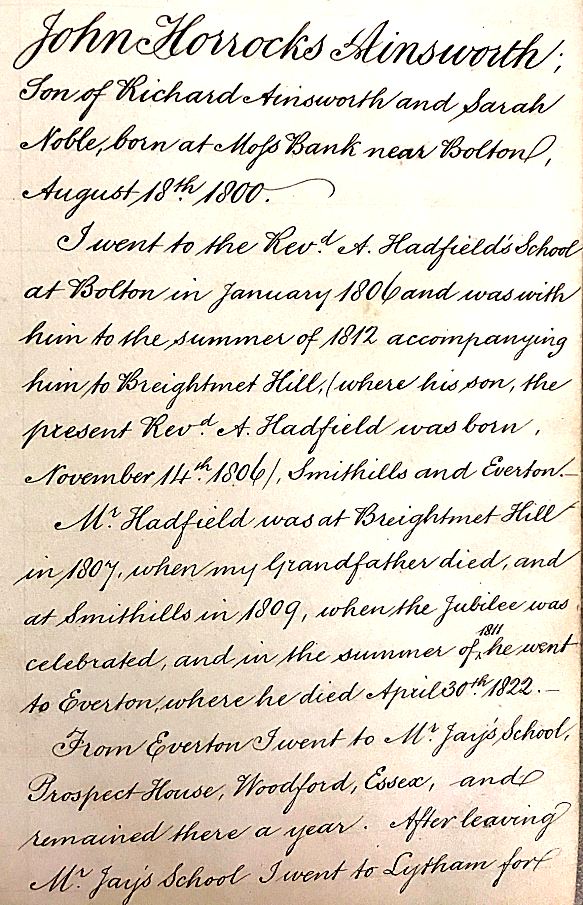 John Horrocks Ainsworth;
Son of Richard Ainsworth and Sarah
Noble, born at Moſs Bank near Bolton,
August 18th 1800.
I went to the Revd. A. Hadfield's School
at Bolton in January 1806 and was with
him to the summer of 1812 accompanying
him to Breightmet Hill, (where his son, the
present Revd. A. Hadfield was born,
November 14th 1806), Smithills and Everton.—
Mr. Hadfield was at Breightmet Hill
in 1807, when my Grandfather died, and
at Smithills in 1809, when the Jubilee was
celebrated, and in the summer of 1811 he went
to Everton, where he died April 30th 1822.—
From Everton I went to Mr. Jay's School,
Prospect House, Woodford, Essex, and
remained there a year. After leaving
Mr. Jay's School I went to Lytham for